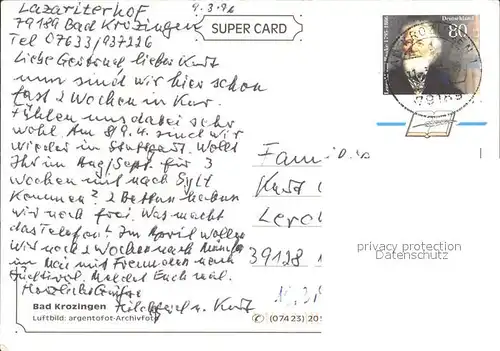 Lazariterhof
79189 Bad Krozingen
Tel 07633/937226
4.3.96
SUPER CARD
Deutschland
80
79189
Liebe Gertrud lieber Kurt
nun sind wir hier schon
fast 2 Wochen in Kur.
Fühlen uns dabei sehr
wohl. Am 8/9.4. sind wir
wieder in Stuttgart. Wollt
Ihr im Aug/Sept. für 3
Wochen mit nach Sylt
kommen? 2 Betten haben
wir noch frei. Was macht
das Telefon? Im April wollen
wir noch 2 Wochen nach
im Mai mit Freunden nach
Südtirol. Meldet Euch mal.
Herzliche Grüße
Hildegard u. Kurt
Kurt
39128
privacy protection
Datenschutz
Bad Krozingen
Luftbild: argentofot-Archivfoto
(07423) 20